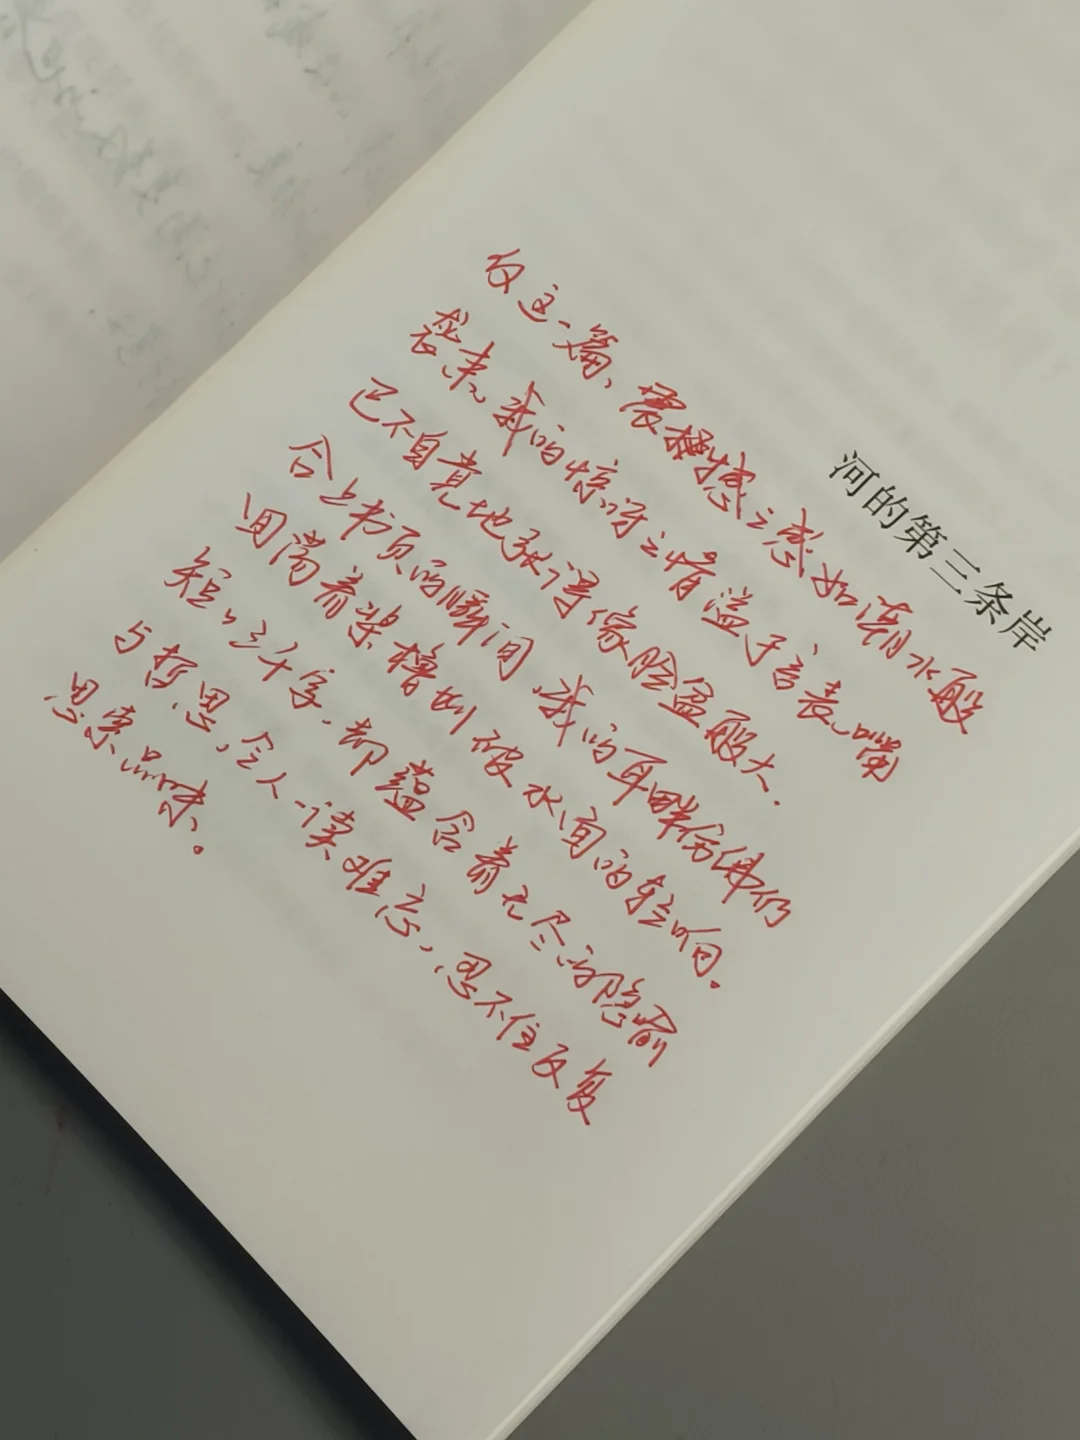 河的第三条岸
仅这一篇、震撼之感如潮水般
袭来，我的惊讶之情溢于言表，嘴
已不自觉地张得像脸盆般大.
合上书页的瞬间，我的耳畔仿佛仍
回荡着桨橹划破水面的轻响。
短短三千字，却蕴含着无尽的隐喻
与哲思，令人一读难忘，忍不住反复
思索品味。